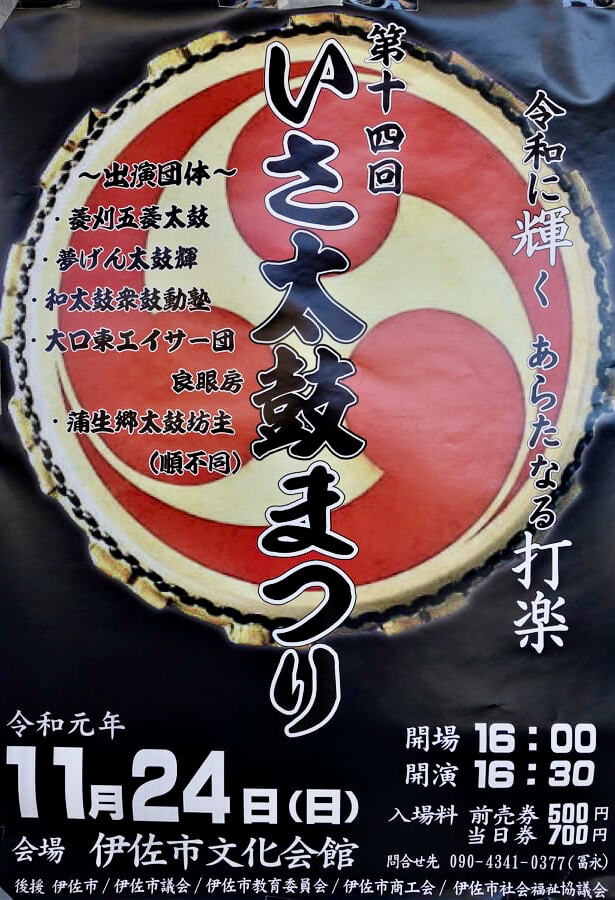 令和に輝く あらたなる打楽
第十四回
いさ太鼓まつり
～出演団体～
・菱刈五菱太鼓
・夢げん太鼓輝
・和太鼓衆鼓動塾
・大口東エイサー団
良眼房
・蒲生郷太鼓坊主
(順不同)
令和元年
11月24日(日)
会場 伊佐市文化会館
開場 16:00
開演 16:30
入場料 前売券 500円
当日券 700円
問合せ先 090-4341-0377(冨永)
後援 伊佐市/伊佐市議会/伊佐市教育委員会/伊佐市商工会/伊佐市社会福祉協議会